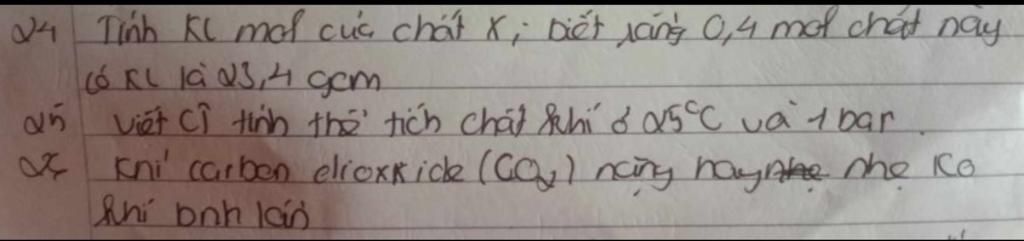 24 Tính KL mol của chất X, biết rằng 0,4 mol chất này
có KL là 23,4 gam
25 viết CT tính thể tích chất khí ở 25°C và 1 bar.
khí carbon dioxkide (CO2) nặng hay nhẹ
khí bnh lần